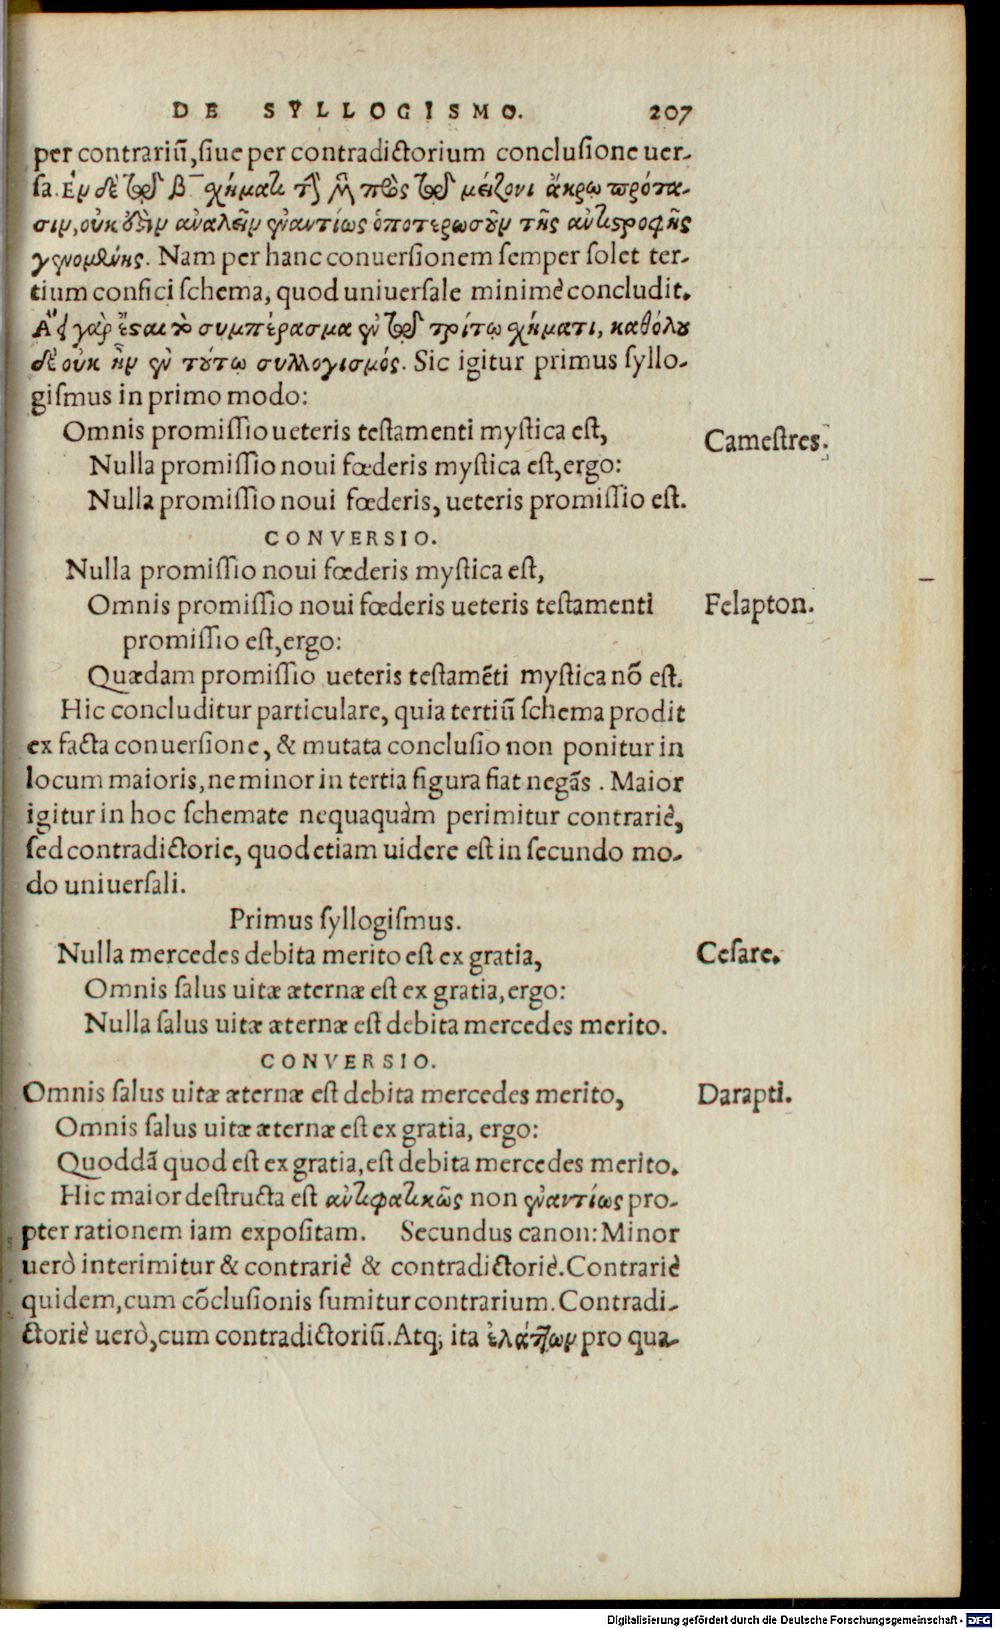 DE SYLLOGISMO. 207
per contrariũ, siue per contradictorium conclusione uer-
sa. Ἐν δὲ τῷ β̅ σχήματι τὴν μὲν πρὸς τῷ μείζονι ἄκρῳ πρότα-
σιν, οὐκ ἔστιν ἀναλεῖν ἐναντίως ὁποτερωσοῦν τῆς ἀντιστροφῆς
γινομένης. Nam per hanc conuersionem semper solet ter-
tium confici schema, quod uniuersale minimè concludit.
Ἀεὶ γὰρ ἔσται τὸ συμπέρασμα ἐν τῷ τρίτῳ σχήματι, καθόλου
δὲ οὐκ ἦν ἐν τούτῳ συλλογισμός. Sic igitur primus syllo-
gismus in primo modo:
Omnis promissio ueteris testamenti mystica est,
Camestres.
Nulla promissio noui fœderis mystica est, ergo:
Nulla promissio noui fœderis, ueteris promissio est.
CONVERSIO.
Nulla promissio noui fœderis mystica est,
Omnis promissio noui fœderis ueteris testamenti
Felapton.
promissio est, ergo:
Quædam promissio ueteris testamẽti mystica nõ est.
Hic concluditur particulare, quia tertiũ schema prodit
ex facta conuersione, & mutata conclusio non ponitur in
locum maioris, ne minor in tertia figura fiat negãs. Maior
igitur in hoc schemate nequaquàm perimitur contrariè,
sed contradictorie, quod etiam uidere est in secundo mo-
do uniuersali.
Primus syllogismus.
Nulla mercedes debita merito est ex gratia,
Cesare.
Omnis salus uitæ æternæ est ex gratia, ergo:
Nulla salus uitæ æternæ est debita mercedes merito.
CONVERSIO.
Omnis salus uitæ æternæ est debita mercedes merito,
Darapti.
Omnis salus uitæ æternæ est ex gratia, ergo:
Quoddã quod est ex gratia, est debita mercedes merito.
Hic maior destructa est ἀντιφατικῶς non ἐναντίως pro-
pter rationem iam expositam. Secundus canon: Minor
uerò interimitur & contrariè & contradictoriè. Contrariè
quidem, cum cõclusionis sumitur contrarium. Contradi-
ctoriè uerò, cum contradictoriũ. Atq; ita ἐλάττων pro qua-
Digitalisierung gefördert durch die Deutsche Forschungsgemeinschaft - DFG